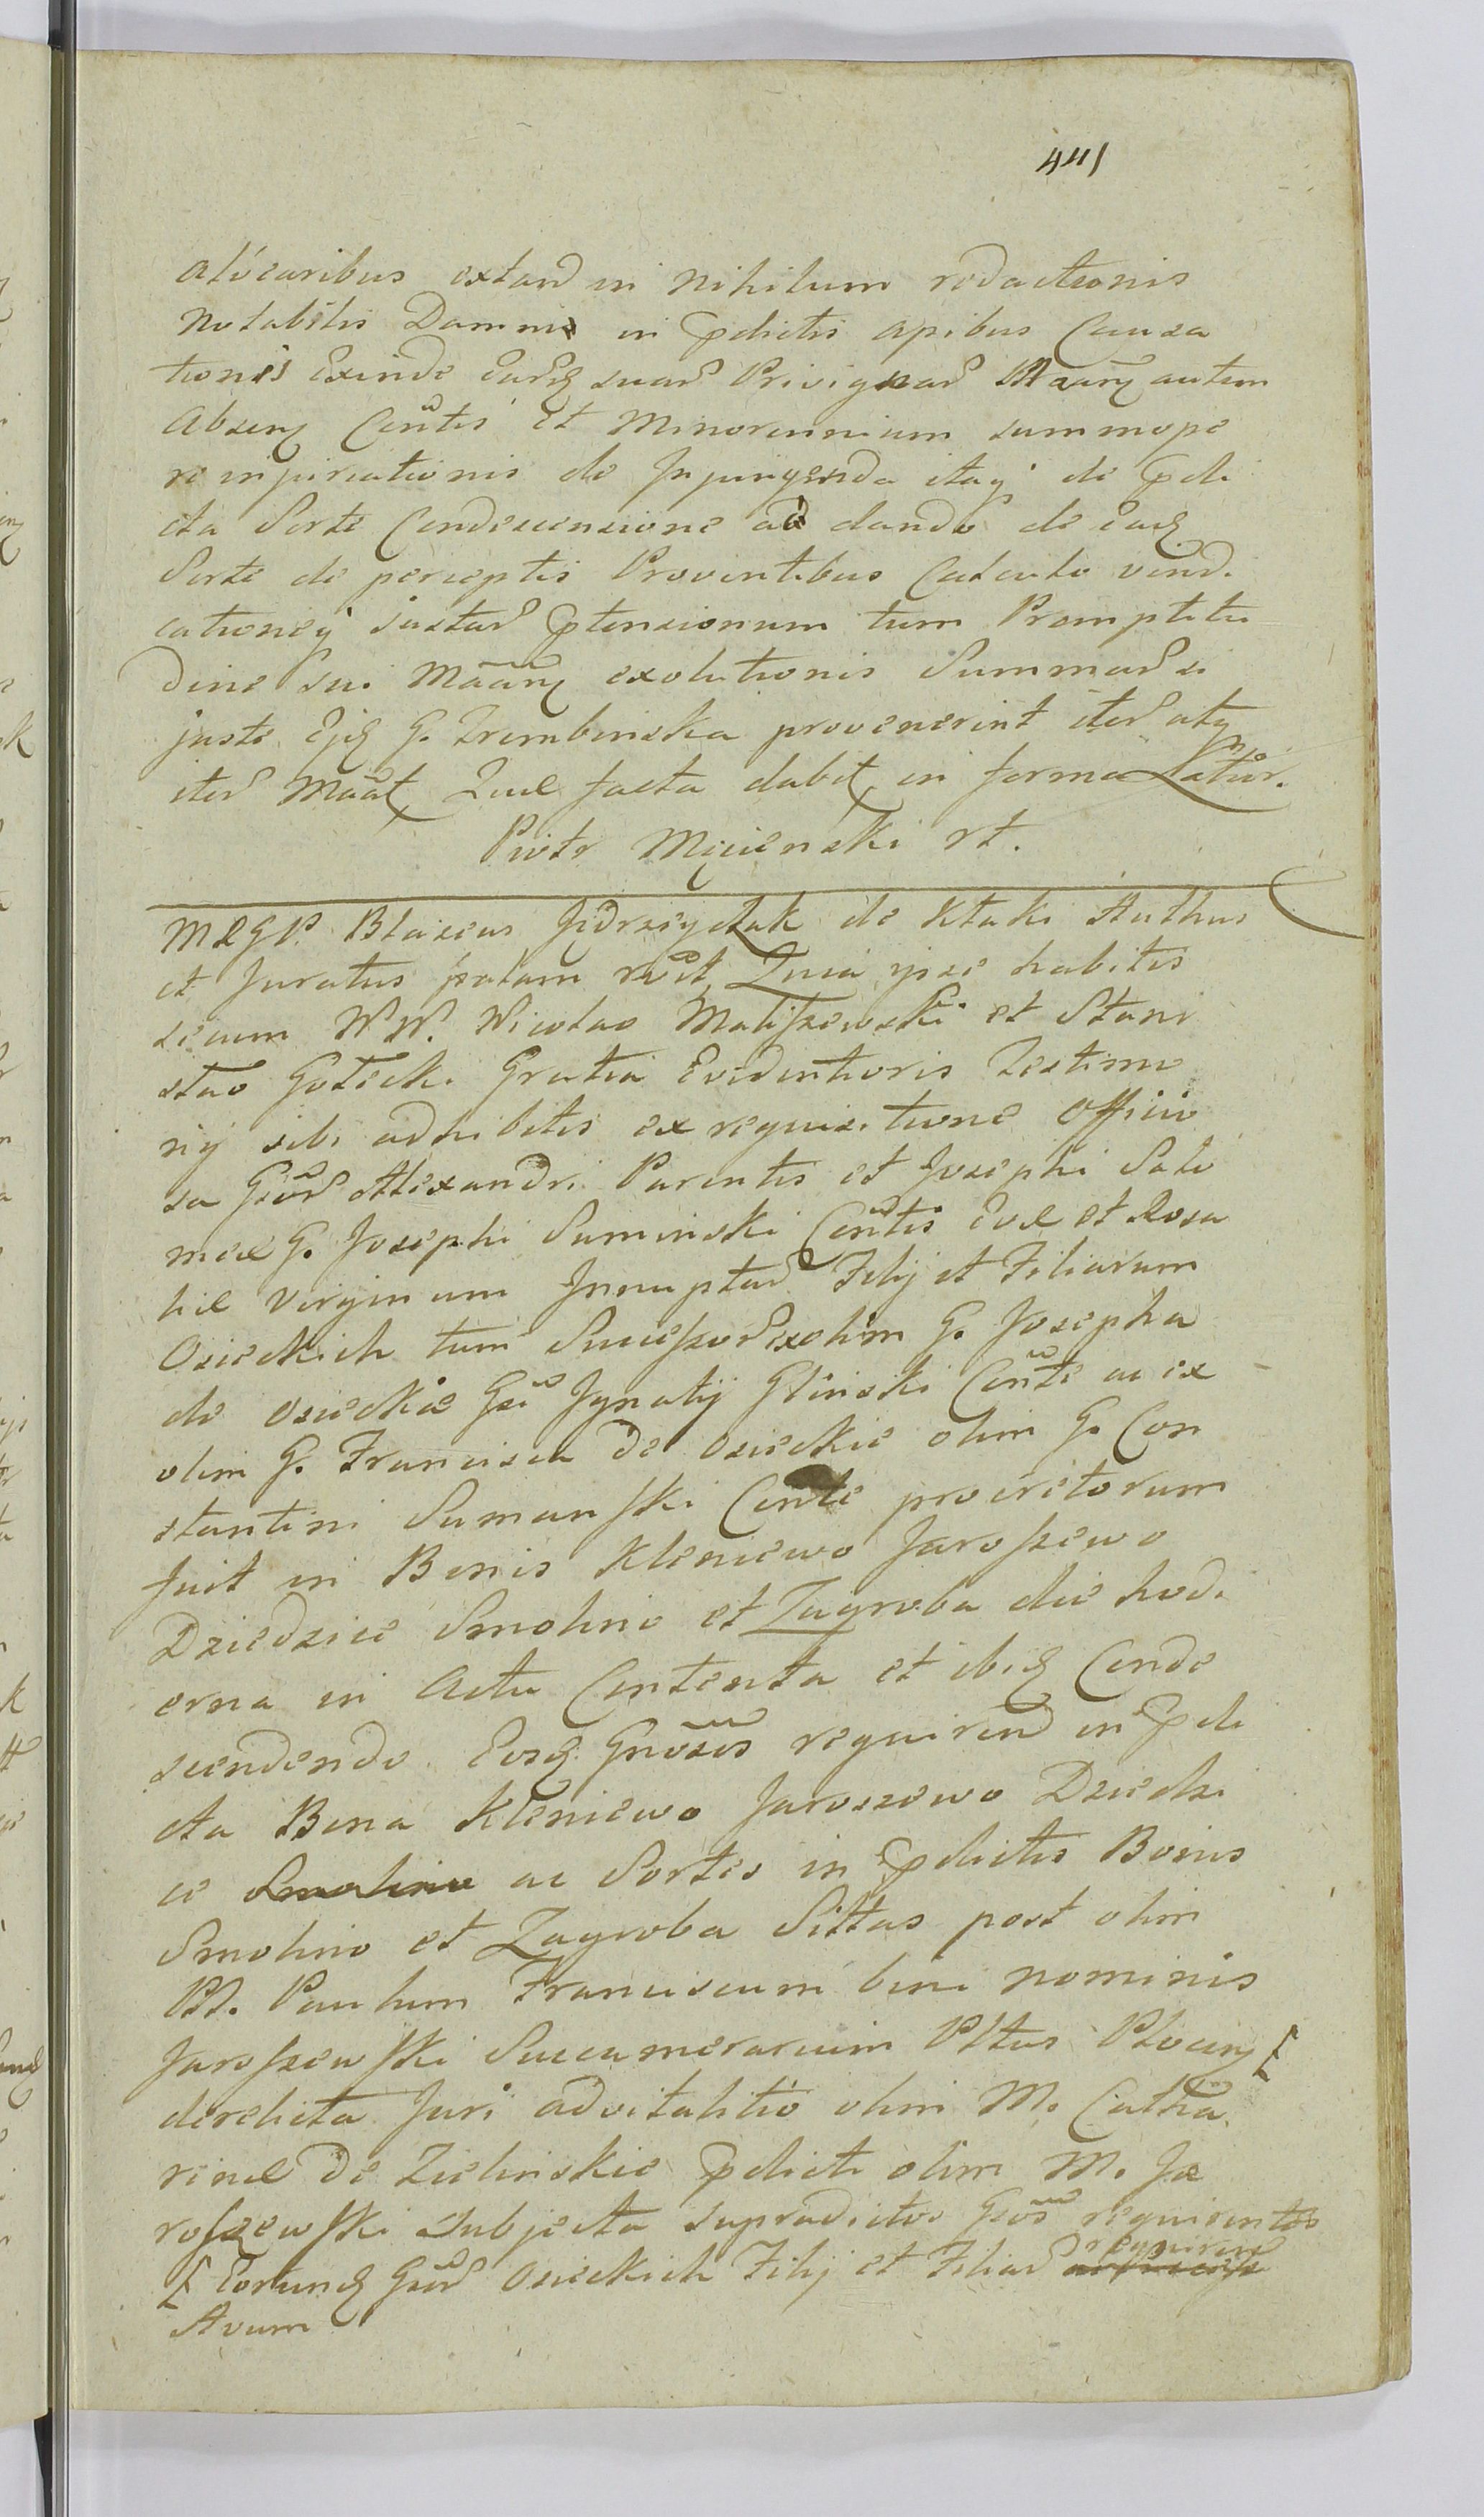 441
alvearibus extand in Nihilum redactionis
Notabilis Damni in pdictis apibus Causa
tionis Exinde suar Privignar autem
Absen Contis Et Minorennium summope
re injuriationis de Injungenda itaq de pdi
cta Sorte Condescensione ac dando de Eadq
Sorte de perceptis Proventibus Calculo vindi
cationeq justar ptensionum tum Promptitu
dine sui exolutionis Summar si
juste Ejq G. Trembinska provenerint iter atq
iter Quae facta dabit in forma
Piotr Mycienski rt.
MRGP. Blaseus Jędrzeyczak de Kłaki Authus
et Juratus palam Quia ipse habitis
secum N.N. Nicolao Maliszewski et Stani
slao Gotecki Gratia Evidentioris Testimo
nij sibi adhibitis ex requisitione Officio
sa Gsor Alexandri Parentis et Josephi Salo
meae G. Josephi Suminski Contis Evae et Rosa
liae Virginum Innuptar Filij et Filiarum
Osieckich tum Successor ex olim G. Josepha
de Osieckie Gsi Ignatij Glinski Conte ac ex
olim G. Francisca de Osieckie olim G. Con
stantini Sumanski Conte procreitorum
fuit in Bonis Kleniewo Jaroszewo
Dziedzice Smolino et Zagroba die hodi
erna in Actu Contenta et ibiq Conde
scendendo Eosq Gnosos requirend in pdi
cta Bona Kleniewo Jaroszewo Dziedzi
ce Smolino ac Sortes in pdictis Bonis
Smolino et Zagroba Sittas post olim
M. Paulum Franciscum bini nominis
Jaroszewski Succamerarium Pltus Plocen
derelicta Juri advitalitio olim M. Catha
rinae de Zielinskie pdicti olim M. Ja
roszewski Subjecta supradictos Gsos requirentes
Eorundq Gsor Osieckich Filij et Filiar requiren
Avum